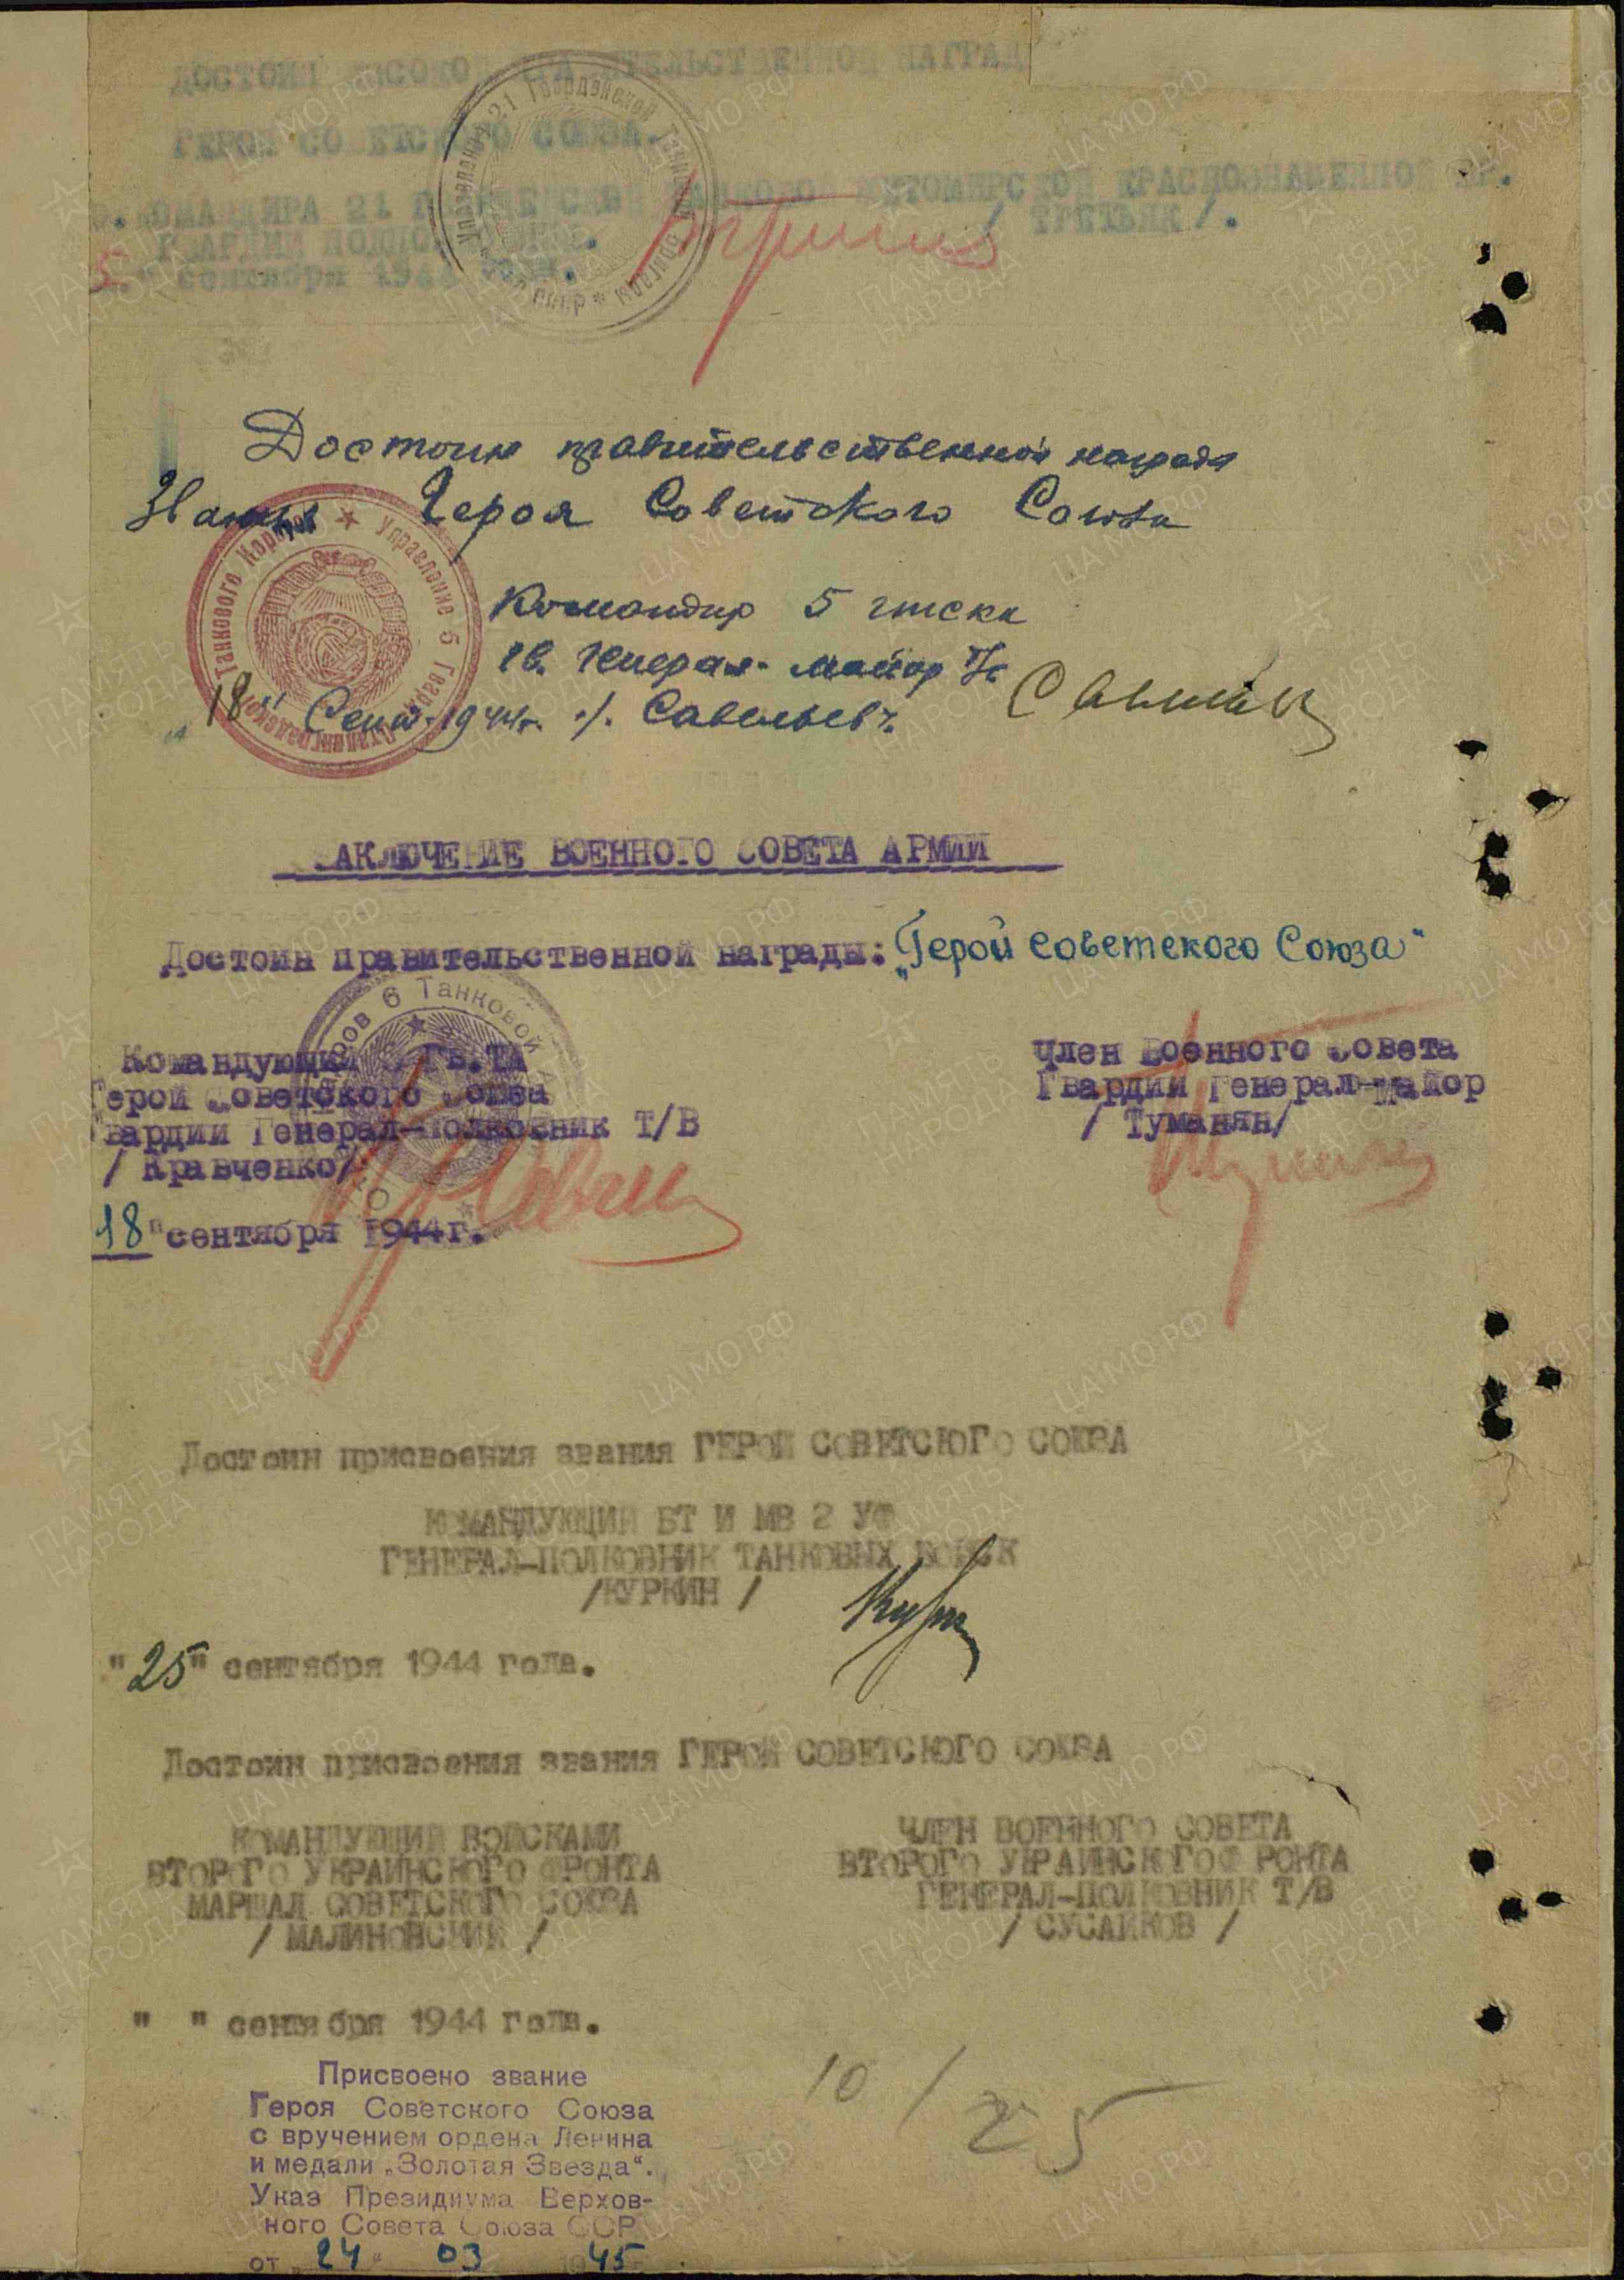 ДОСТОИН ВЫСОКОЙ ПРАВИТЕЛЬСТВЕННОЙ НАГРАД
ГЕРОЯ СОВЕТСКОГО СОЮЗА.
КОМАНДИРА 21 ГВАРДЕЙСКОЙ ТАНКОВОЙ ЖИТОМИРСКОЙ КРАСНОЗНАМЕННОЙ БР.
ГВАРДИИ ПОДПОЛКОВНИК. / ТРЕТЬЯК /.
5. " сентября 1944 года.
Управление 21 Гвардейской Танковой бригады
Достоин правительственной награды
Звания Героя Советского Союза
Управление 5 Гвард. Сталинградского Танкового Корпуса
Командир 5 гтска
гв. Генерал-майор т/в
"18" Сент. 1944г. /. Савельев /.
ЗАКЛЮЧЕНИЕ ВОЕННОГО СОВЕТА АРМИИ
Достоин правительственной награды: "Герой Советского Союза"
6 Танковой
Командующий Гв.ТА
Герой Советского Союза
Гвардии Генерал-Полковник Т/В
/ Кравченко/
18 "сентября 1944г.
Член Военного Совета
Гвардии Генерал-майор
/ Туманян/
Достоин присвоения звания ГЕРОЙ СОВЕТСКОГО СОЮЗА
КОМАНДУЮЩИЙ БТ И МВ 2 УФ
ГЕНЕРАЛ-ПОЛКОВНИК ТАНКОВЫХ ВОЙСК
/КУРКИН /
"25" сентября 1944 года.
Достоин присвоения звания ГЕРОЙ СОВЕТСКОГО СОЮЗА
КОМАНДУЮЩИЙ ВОЙСКАМИ
ВТОРОГО УКРАИНСКОГО ФРОНТА
МАРШАЛ СОВЕТСКОГО СОЮЗА
/ МАЛИНОВСКИЙ /
ЧЛЕН ВОЕННОГО СОВЕТА
ВТОРОГО УКРАИНСКОГОФ РОНТА
ГЕНЕРАЛ-ПОЛКОВНИК Т/В
/ СУСАЙКОВ /
" " сентября 1944 года.
10 / 25
Присвоено звание
Героя Советского Союза
с вручением ордена Ленина
и медали „Золотая Звезда“.
Указ Президиума Верхов-
ного Совета Союза ССР
от „24“ 03 1945